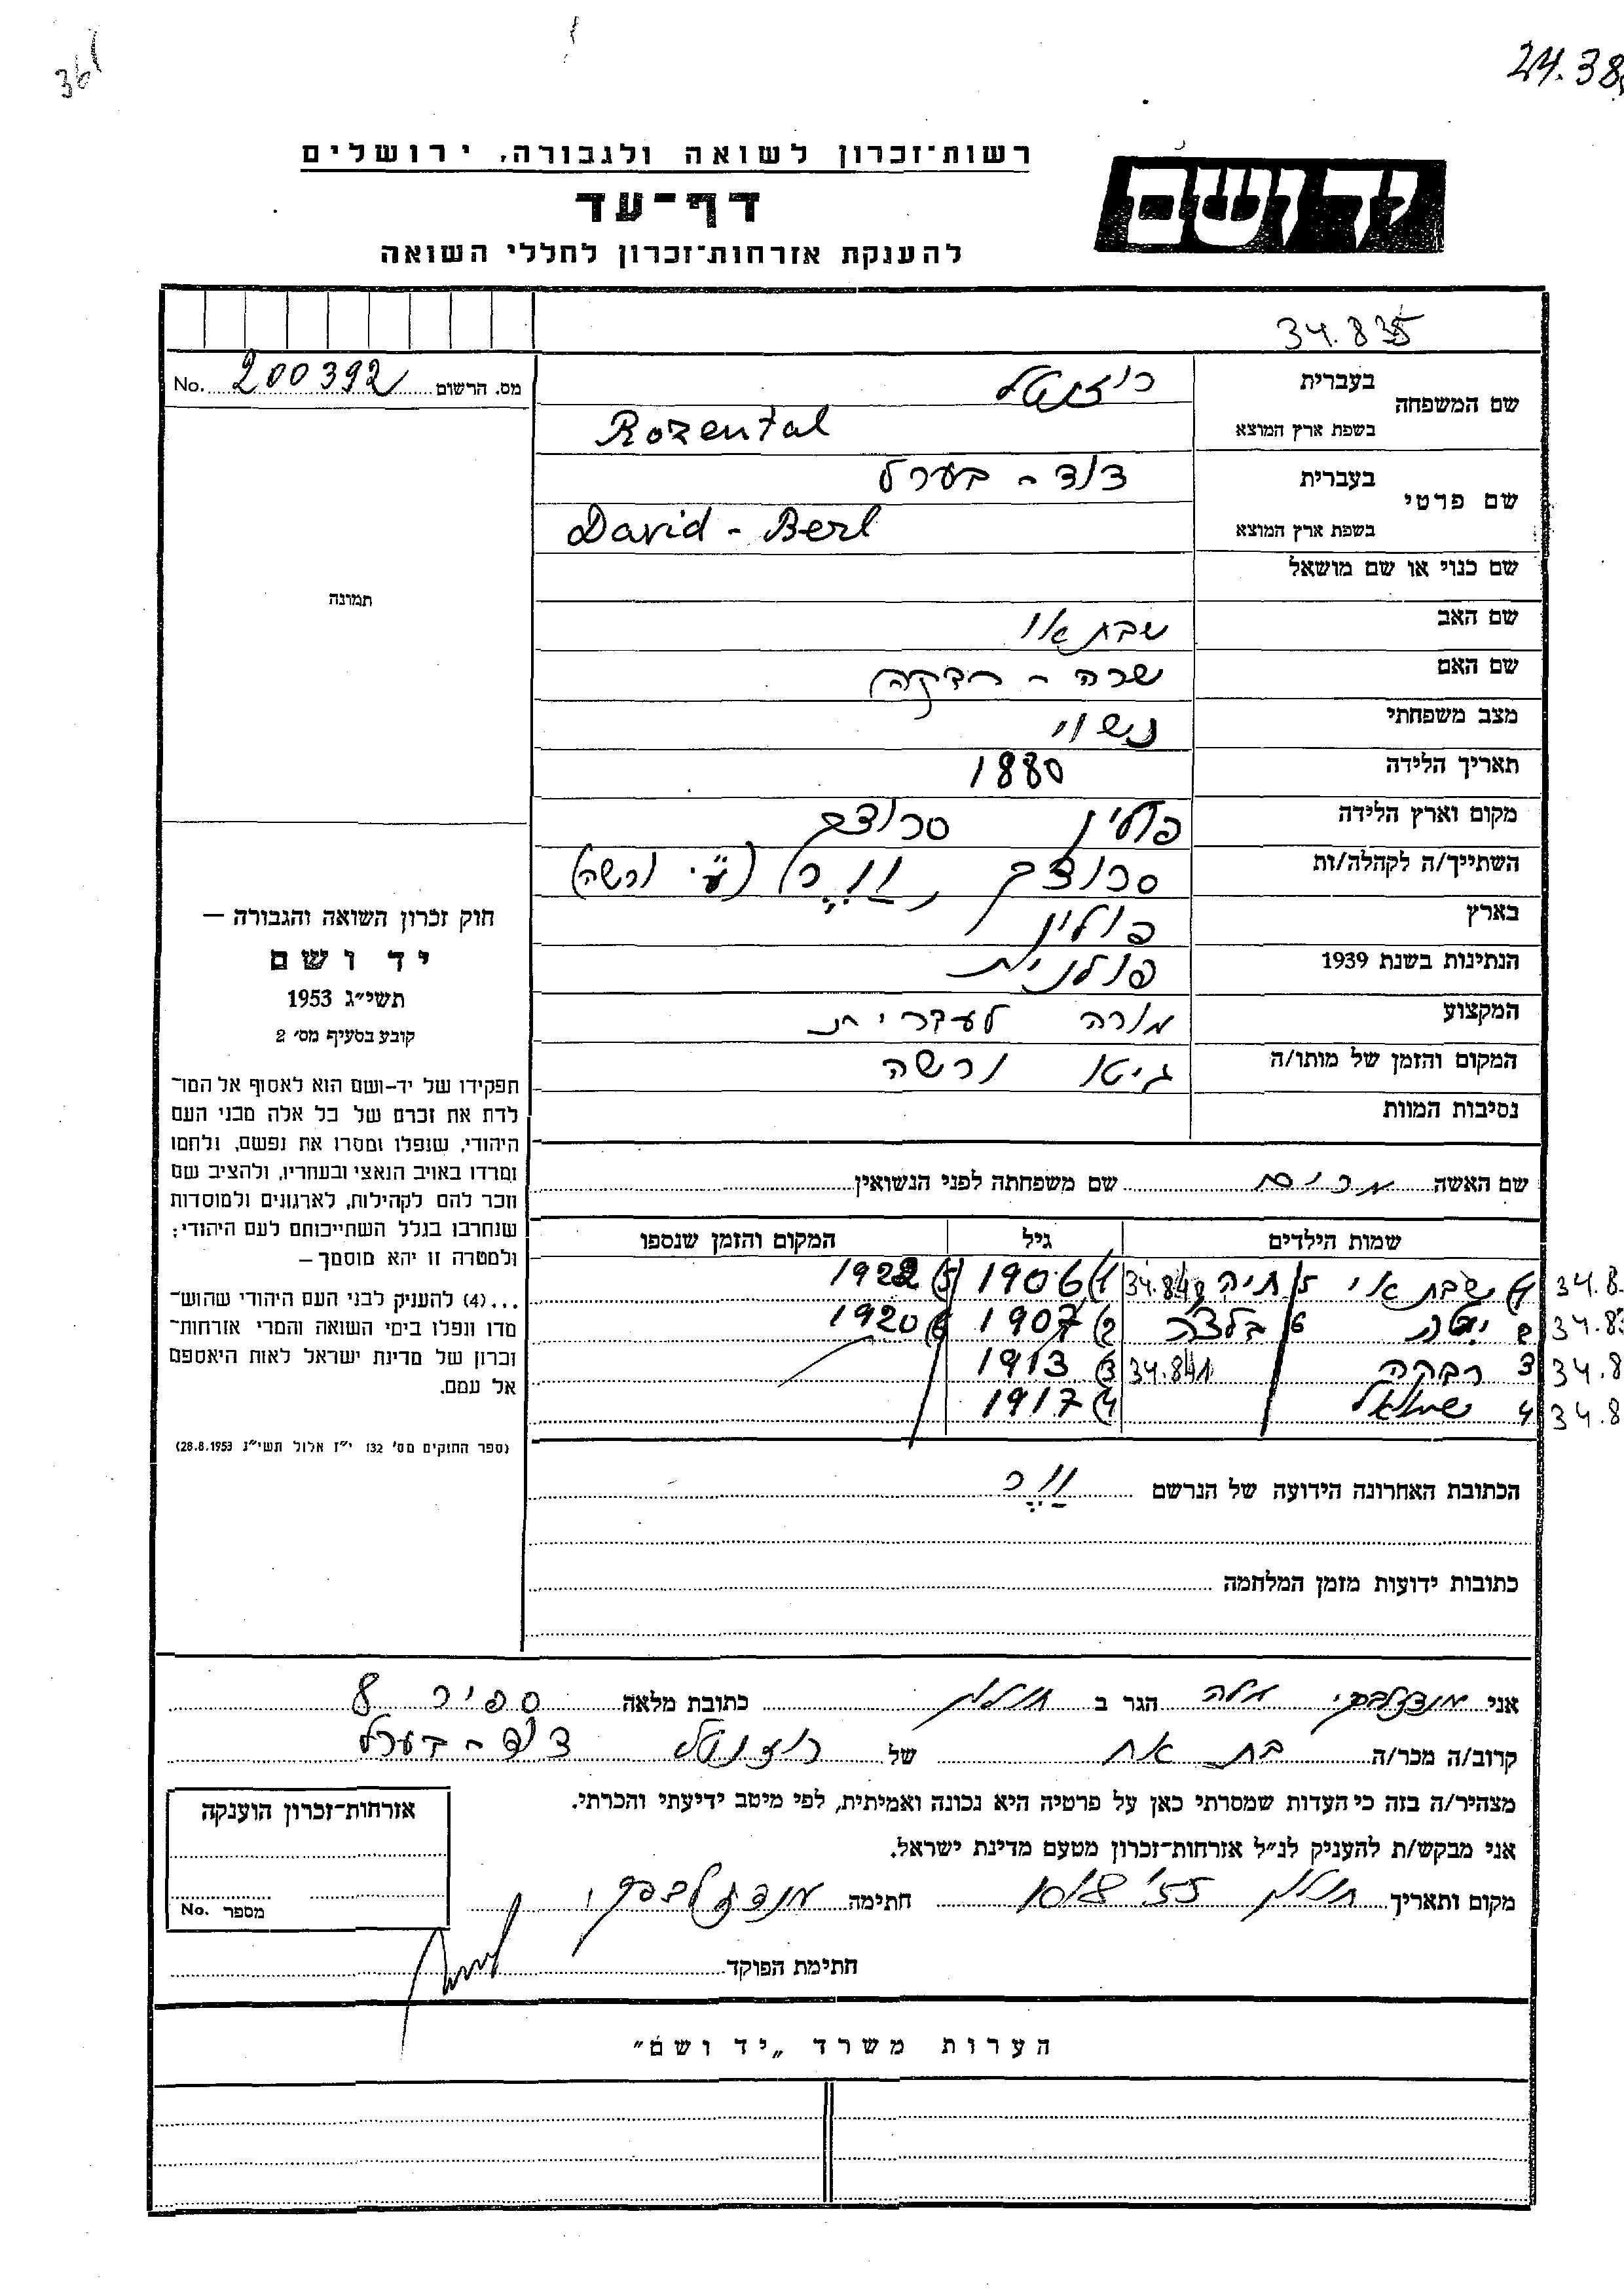 24.38
36
רשות־זכרון לשואה ולגבורה, ירושלים
יד ושם
דף־עד
להענקת אזרחות־זכרון לחללי השואה
34.835
מס. הרשום 200392 No.
שם המשפחה
בעברית רוזנטל
בשפת ארץ המוצא Rozental
שם פרטי
בעברית דוד - בערל
בשפת ארץ המוצא David - Berl
שם כנוי או שם מושאל
תמונה
שם האב שבתאי
שם האם שרה - רבקה
מצב משפחתי נשוי
תאריך הלידה 1880
מקום וארץ הלידה פולין סרוצק
השתייך/ה לקהלה/ות סרוצק, וַוֶר (ע״י ורשה)
בארץ פולין
הנתינות בשנת 1939 פולנית
המקצוע מורה לעברית
המקום והזמן של מותו/ה גיטו ורשה
נסיבות המוות
שם האשה מרים שם משפחתה לפני הנשואין
שמות הילדים גיל המקום והזמן שנספו
1) שבתאי 5 חיה 1) 1906 5) 1922
2 יטה 6 בלצ׳ה 2) 1907 6) 1920
3 רבקה 34.841 3) 1913
4 שמואל 4) 1917
34.8
34.83
34.8
34.8
הכתובת האחרונה הידועה של הנרשם וַוֶר
כתובות ידועות מזמן המלחמה
חוק זכרון השואה והגבורה —
יד ושם
תשי״ג 1953
קובע בסעיף מס׳ 2
תפקידו של יד-ושם הוא לאסוף אל המו־
לדת את זכרם של כל אלה מבני העם
היהודי, שנפלו ומסרו את נפשם, ולחמו
ומרדו באויב הנאצי ובעוזריו, ולהציב שם
וזכר להם לקהילות, לארגונים ולמוסדות
שנחרבו בגלל השתייכותם לעם היהודי;
ולמטרה זו יהא מוסמך —
...(4) להענק לבני העם היהודי שהוש־
מדו ונפלו בימי השואה והמרי אזרחות־
זכרון של מדינת ישראל לאות היאספם
אל עמם.
(ספר החוקים מס׳ 132 י״ז אלול תשי״ג 28.8.1953)
אני אלה הגר ב חולון כתובת מלאה ספיר 8
קרוב/ה מכר/ה בת אח של רוזנטל דוד - בערל
מצהיר/ה בזה כי העדות שמסרתי כאן על פרטיה היא נכונה ואמיתית, לפי מיטב ידיעתי והכרתי.
אני מבקש/ת להעניק לנ״ל אזרחות־זכרון מטעם מדינת ישראל.
מקום ותאריך חולון 10/8/55 חתימה
חתימת הפוקד
אזרחות־זכרון הוענקה
מספר No.
הערות משרד „יד ושם״